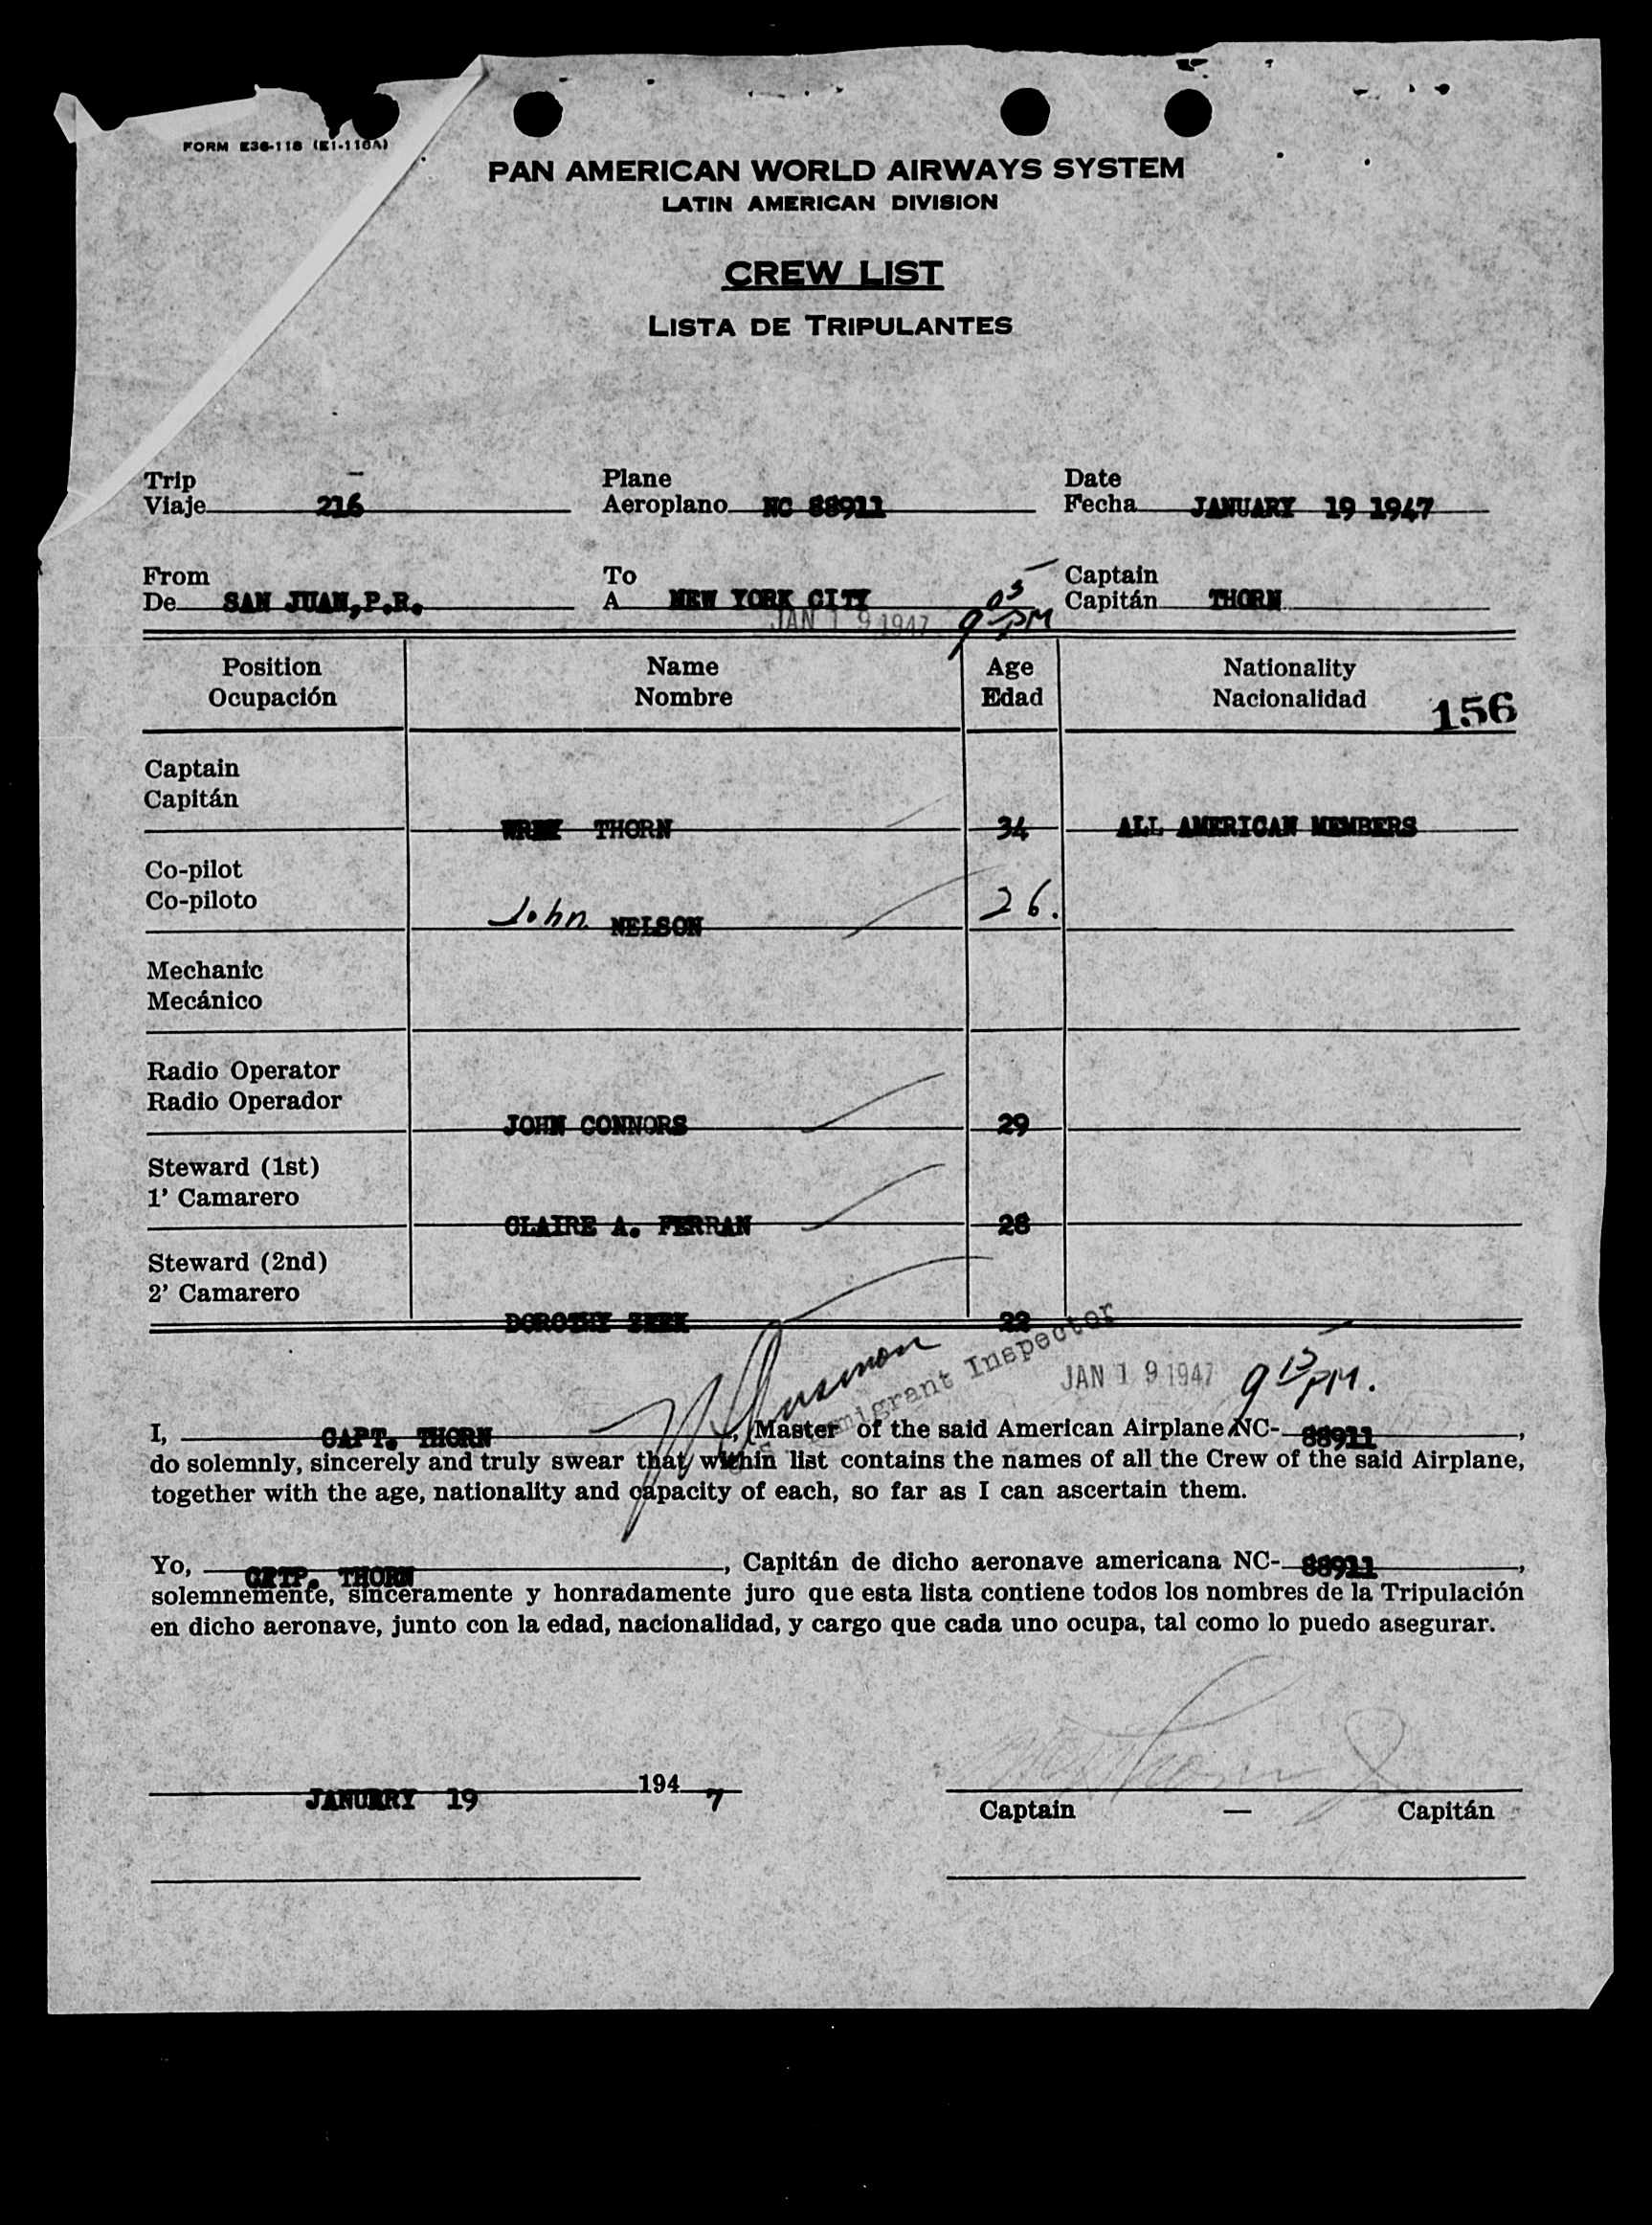 FORM E36-118 (E1-116A)
PAN AMERICAN WORLD AIRWAYS SYSTEM
LATIN AMERICAN DIVISION
CREW LIST
LISTA DE TRIPULANTES
Trip Plane Date
Viaje 216 Aeroplano NC 88911 Fecha JANUARY 19 1947
From To Captain
De SAN JUAN,P.R. A NEW YORK CITY Capitán THORN
JAN 19 1947 9 05 PM
Position Name Age Nationality
Ocupación Nombre Edad Nacionalidad 156
Captain
Capitán
THORN 34 ALL AMERICAN MEMBERS
Co-pilot
Co-piloto
John NELSON 26.
Mechanic
Mecánico
Radio Operator
Radio Operador
JOHN CONNORS 29
Steward (1st)
1' Camarero
CLAIRE A. FERRAN 28
Steward (2nd)
2' Camarero
DOROTHY 22
Immigrant Inspector
JAN 19 1947 9 15 PM.
I, CAPT. THORN, Master of the said American Airplane NC- 88911,
do solemnly, sincerely and truly swear that within list contains the names of all the Crew of the said Airplane,
together with the age, nationality and capacity of each, so far as I can ascertain them.
Yo, THORN, Capitán de dicho aeronave americana NC- 88911,
solemnemente, sinceramente y honradamente juro que esta lista contiene todos los nombres de la Tripulación
en dicho aeronave, junto con la edad, nacionalidad, y cargo que cada uno ocupa, tal como lo puedo asegurar.
JANUARY 19 194 7
Captain — Capitán